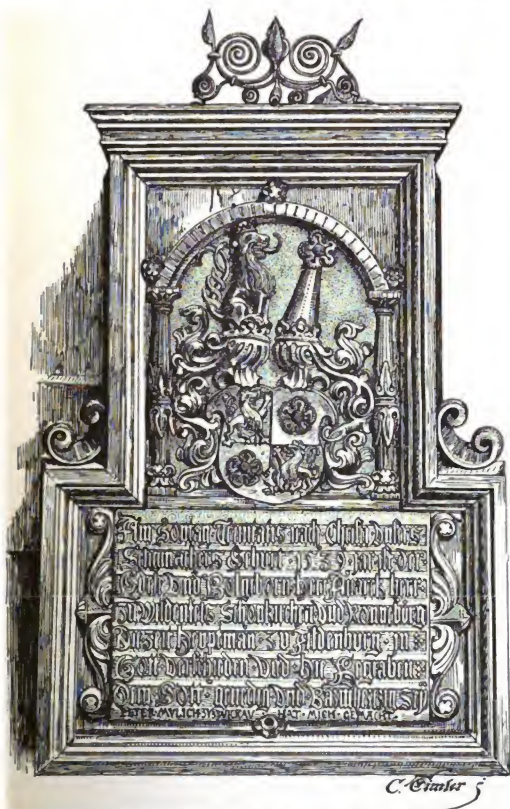 Am Sontag Trinitatis nach Christi Unsers
Seligmachers Geburt 1539 ist der
Edele und Wolgeborn herr Anarck herr
zu Wildenfels Schonkirchen und Ronneburg
Inzeit heuptman zu Aldenburg in
Got verschieden und hie begraben
Dem Gott genedig und Barmhertzig sy
PETER·MVLICH·ZV·ZWICKAV·HAT·MICH·GEMACHT